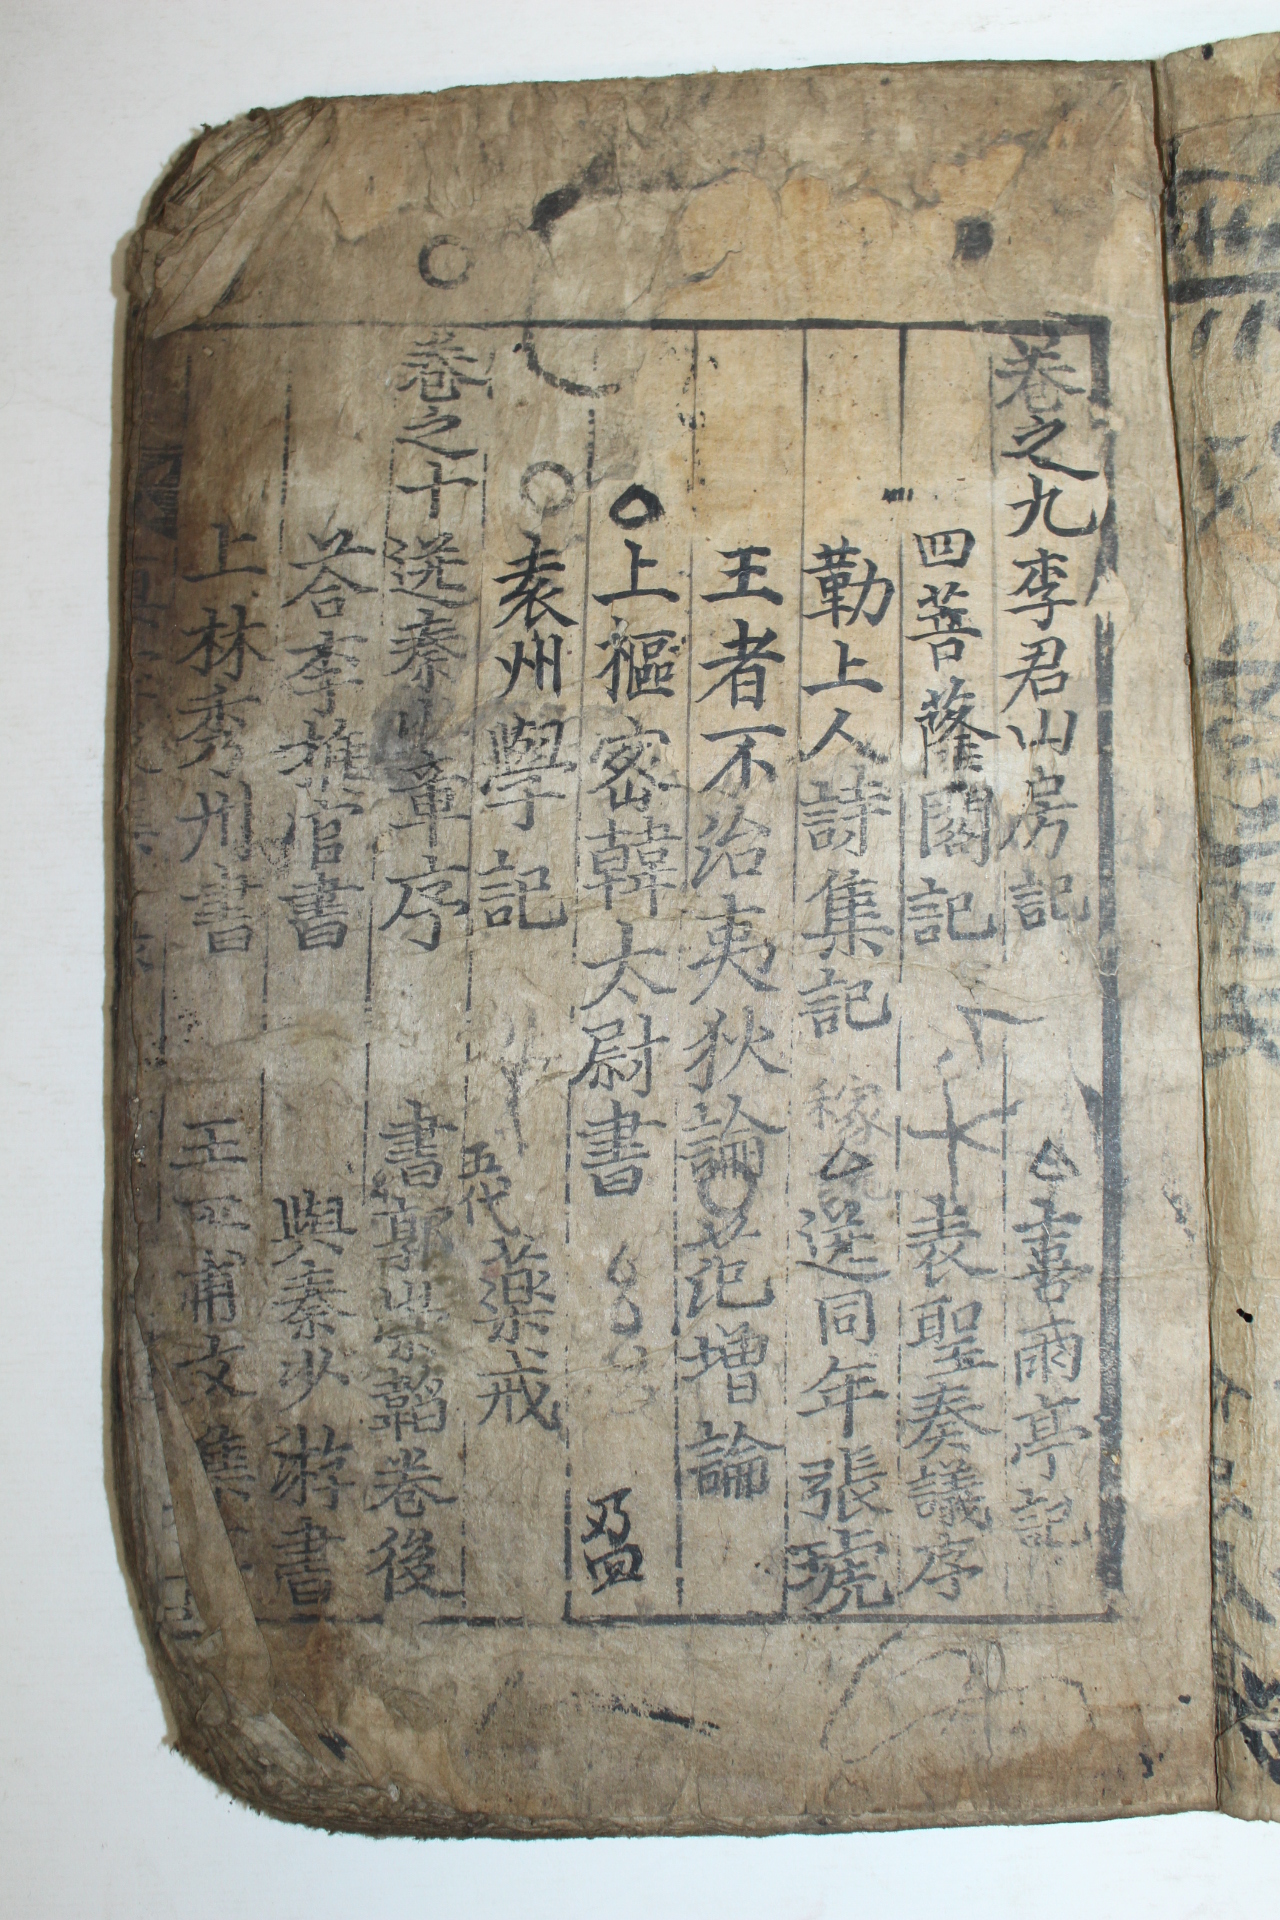 卷之九李君山房記 喜雨亭記
四菩薩閣記 表聖奏議序
勤上人詩集記 稼說送同年張琥
王者不治夷狄論 范增論
上樞密韓太尉書
袁州學記 五代 藥戒
卷之十送秦少章序 書郭崇韜卷後
答李推官書 與秦少游書
上林秀州書 王平甫文集